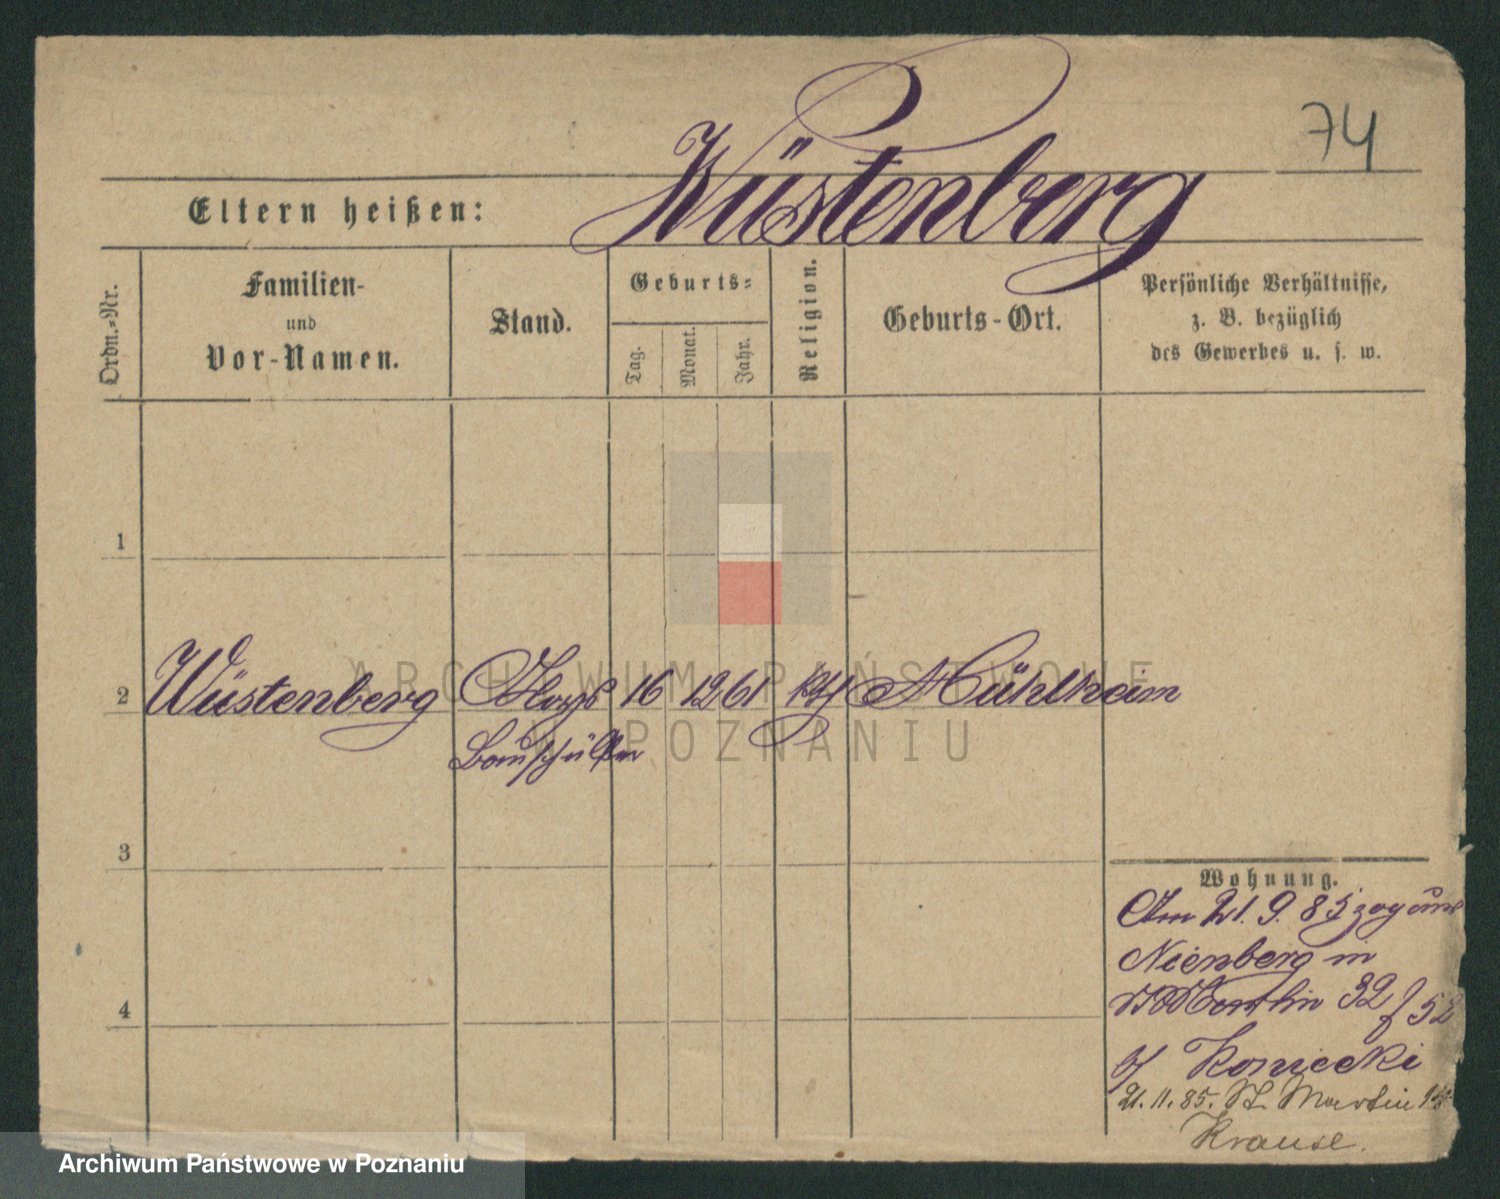 74
Wüstenberg
Eltern heißen:
Ordn.-Nr.
Familien-
und
Vor-Namen.
Stand.
Geburts-
Tag.
Monat.
Jahr.
Religion.
Geburts-Ort.
Persönliche Verhältnisse,
z. B. bezüglich
des Gewerbes u. s. w.
1
2 Wüstenberg 16 12 61 kth Mühlheim
Bauschüler
3
4
Wohnung.
Am 21. 9. 85 zog aus
Nienberg in
St Martin 32 f 52
b/ Koniecki
21. 11. 85. St. Martin
Krause.
ARCHIWUM PAŃSTWOWE
W POZNANIU
Archiwum Państwowe w Poznaniu